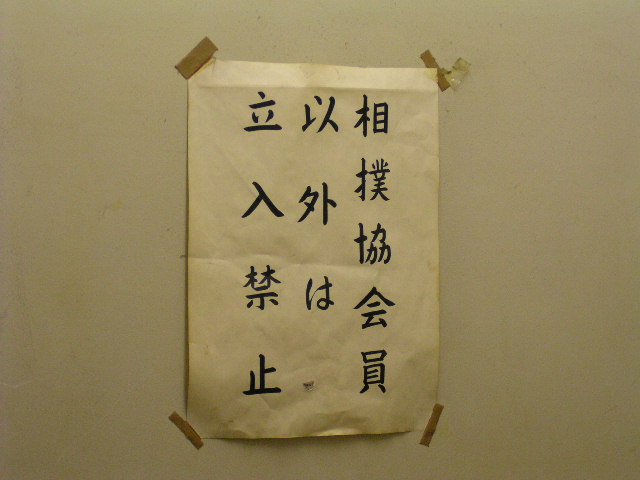 相撲協会員
以外は
立入禁止